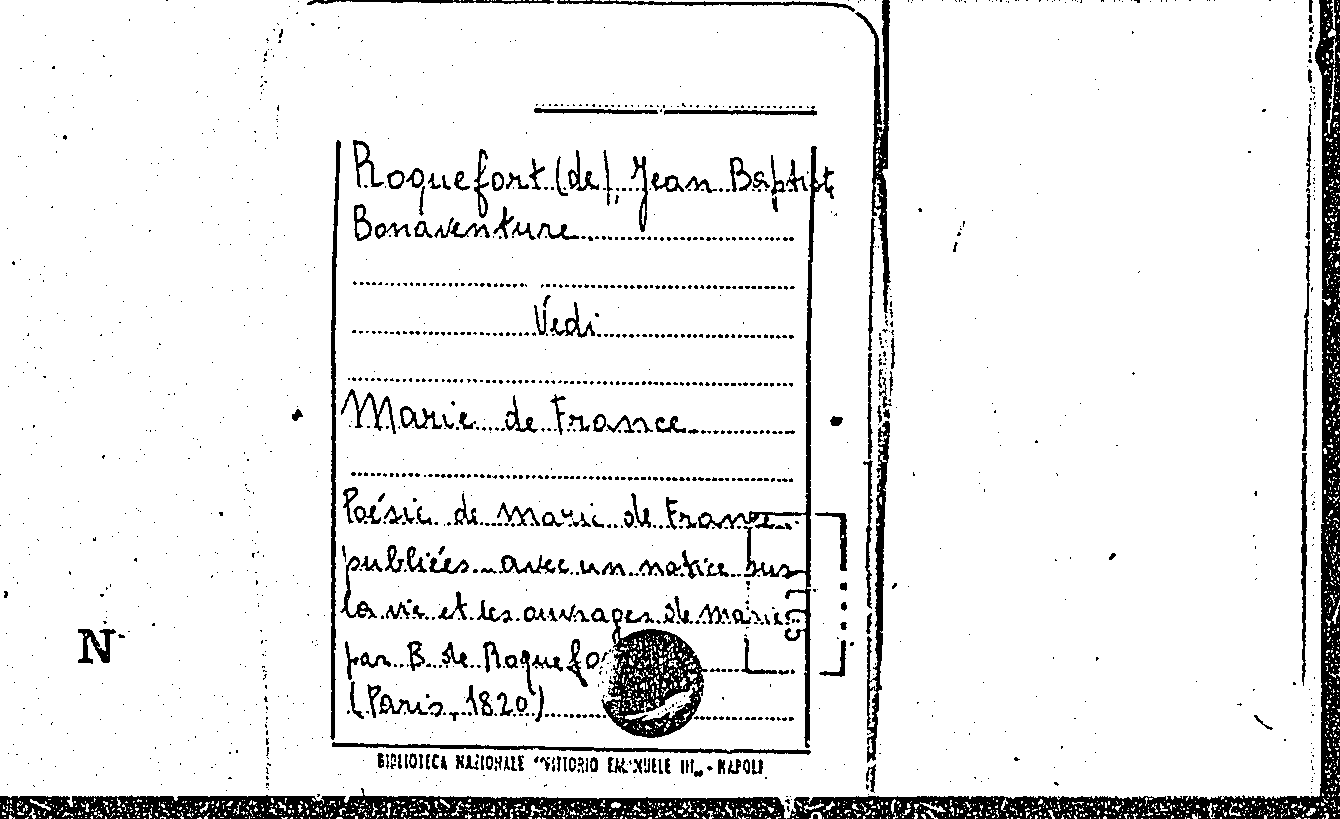 Roquefort (de), Jean Baptist
Bonaventure
Vedi
Marie de France
Poésie de Marie de France
publiées avec un notice sur
la vie et les ouvrages de Marie
par B. de Roquefo
(Paris, 1820)
N
BIBLIOTECA NAZIONALE "VITTORIO EMANUELE III" - NAPOLI